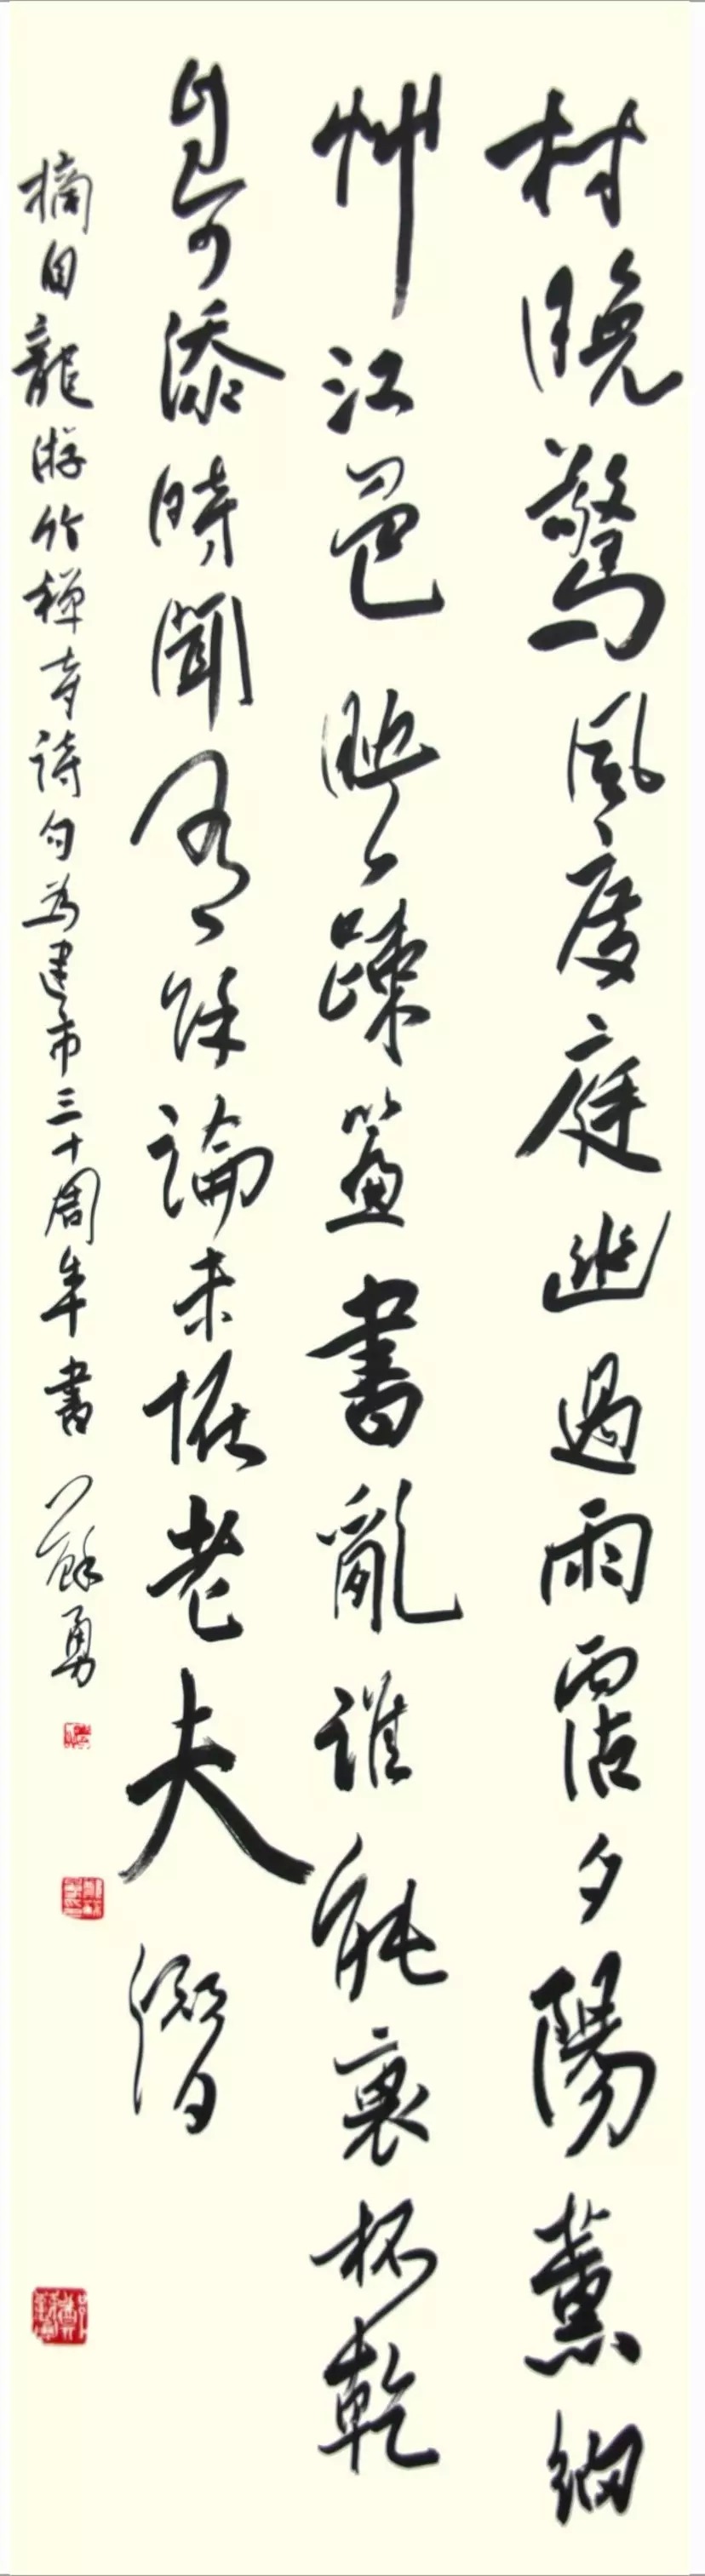 村晚驚風度庭幽過雨霑夕陽薰細
艸江色映踈簾書亂誰能裹杯乾
自可添時聞有餘論未怪老夫潛
摘自龍游竹禪寺詩句為建市三十周年書 蘇勇